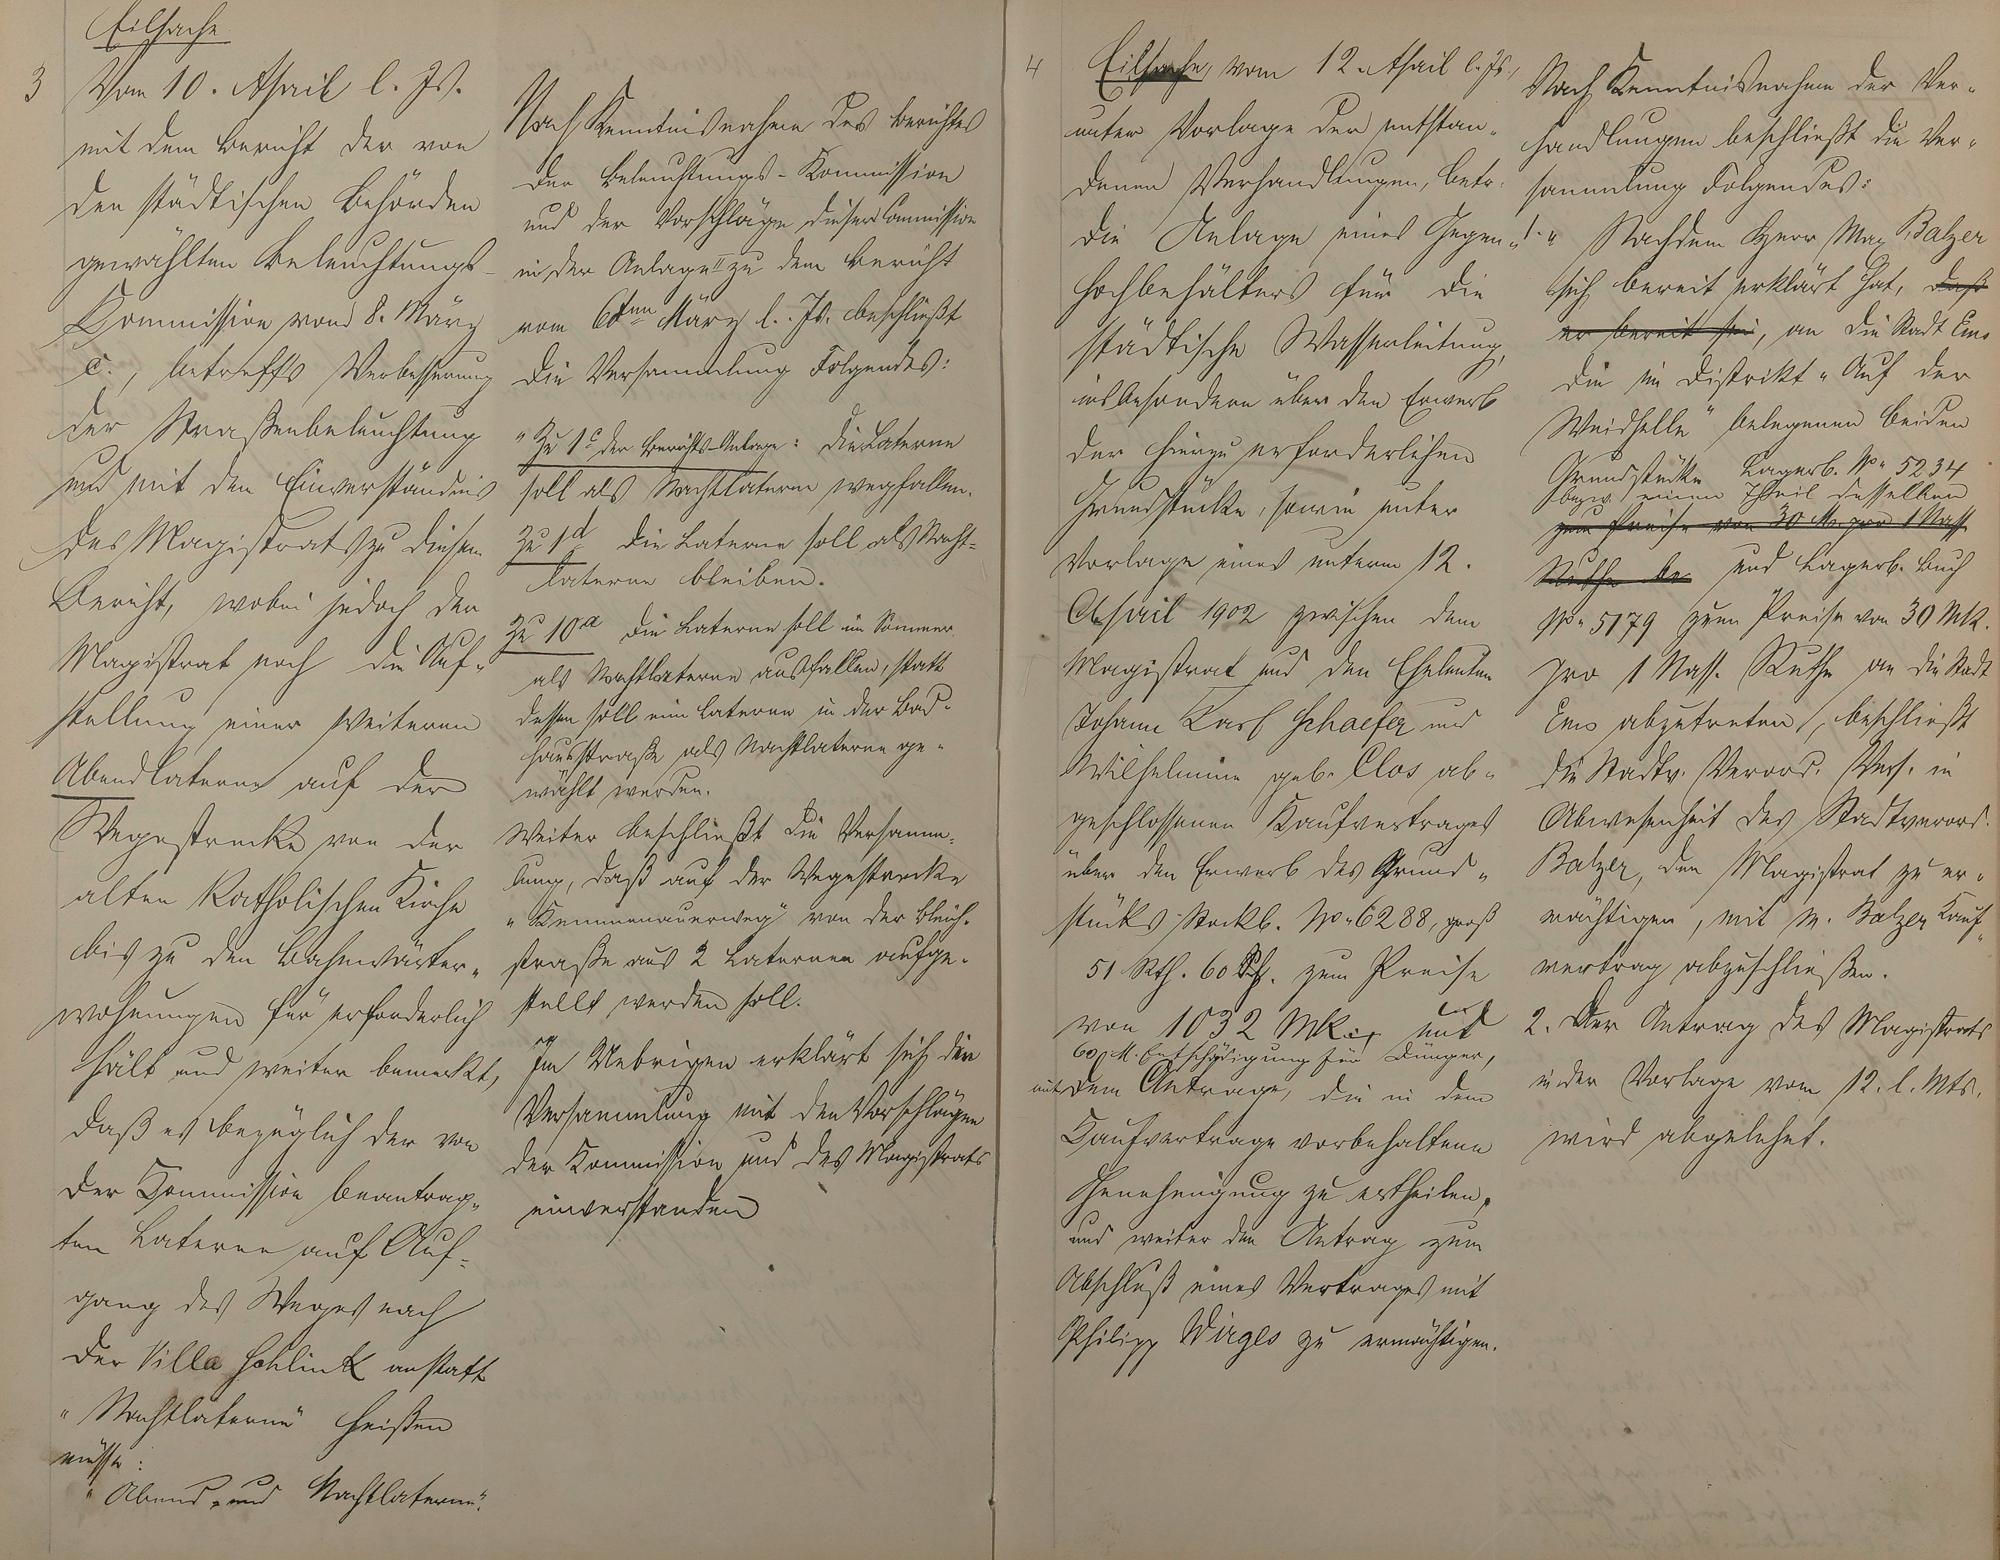 Eilsache
3 Vom 10. April l. Js.
mit dem Bericht der von
den städtischen Behörden
gewählten Beleuchtungs-
Commission vom 8. März
c., betreffs Verbesserung
der Straßenbeleuchtung
und mit dem Einverständnis
des Magistrats zu diesem
Bericht, wobei jedoch der
Magistrat noch die Auf-
stellung einer weiteren
Abendlaterne auf der
Wegestrecke von der
alten katholischen Kirche
bis zu den Bahnwärter-
wohnungen für erforderlich
hält und weiter bemerkt,
daß es bezüglich der von
der Commission beantrag-
ten Laterne auf Auf-
gang des Weges nach
der Villa Schlink anstatt
"Nachtlaterne" heißen
müsse:
"Abend- und Nachtlaterne".
Nach Kenntnisnahme des Berichtes
der Beleuchtungs-Kommission
und der Vorschläge dieser Commission
in der Anlage II zu dem Bericht
vom 6ten März l. Js. beschließt
die Versammlung Folgendes:
"Zu 1c der Berichts-Anlage: die Laterne
soll als Nachtlaterne wegfallen.
Zu 1d die Laterne soll als Nacht-
laterne bleiben.
Zu 10a die Laterne soll im Sommer
als Nachtlaterne ausfallen, statt
dessen soll eine Laterne in der Bad-
hausstraße als Nachtlaterne ge-
wählt werden.
Weiter beschließt die Versamm-
lung, daß auf der Wegestrecke
"Kemmenauerweg" von der Bleich-
straße aus 2 Laternen aufge-
stellt werden soll.
Im Uebrigen erklärt sich die
Versammlung mit den Vorschlägen
der Kommission und des Magistrats
einverstanden
4 Eilsache, vom 12. April l. Js.,
unter Vorlage der entstan-
denen Verhandlungen, betr.
die Anlage eines Gegen-
hochbehälters für die
städtische Wasserleitung,
insbesondere über den Erwerb
der hierzu erforderlichen
Grundstücke, sowie unter
Vorlage eines unterm 12.
April 1902 zwischen dem
Magistrat und den Eheleuten
Johann Karl Schaefer und
Wilhelmine geb. Clos ab-
geschlossenen Kaufvertrages
über den Erwerb des Grund-
stücks Stockb. No 6288, groß
51 Rth. 60 Sch. zum Preise
von 1032 Mk. und
60 M. Entschädigung für Dünger,
mit dem Antrage, die in dem
Kaufvertrage vorbehaltene
Genehmigung zu ertheilen,
und weiter den Antrag zum
Abschluß eines Vertrages mit
Philipp Wirges zu ermächtigen.
Nach Kenntnisnahme der Ver-
handlungen beschließt die Ver-
sammlung Folgendes:
1. "Nachdem Herr Max Balzer
sich bereit erklärt hat, daß
er bereit sei, an die Stadt Ems
die im Distrikt "Auf der
Weidhelle" belegenen beiden
Grundstücke Lagerb. No 5234
bezw. einen Theil desselben
zum Preise von 30 M. pro 1 Nass.
Ruthe und Lagerb. Buch
No 5179 zum Preise von 30 Mk.
pro 1 Nass. Ruthe an die Stadt
Ems abzutreten, beschließt
die Stadtv. Verord. Vers. in
Abwesenheit des Stadtverord.
Balzer, den Magistrat zu er-
mächtigen, mit M. Balzer Kauf-
vertrag abzuschließen.
2. Der Antrag des Magistrats
in der Vorlage vom 12. l. Mts.
wird abgelehnt.